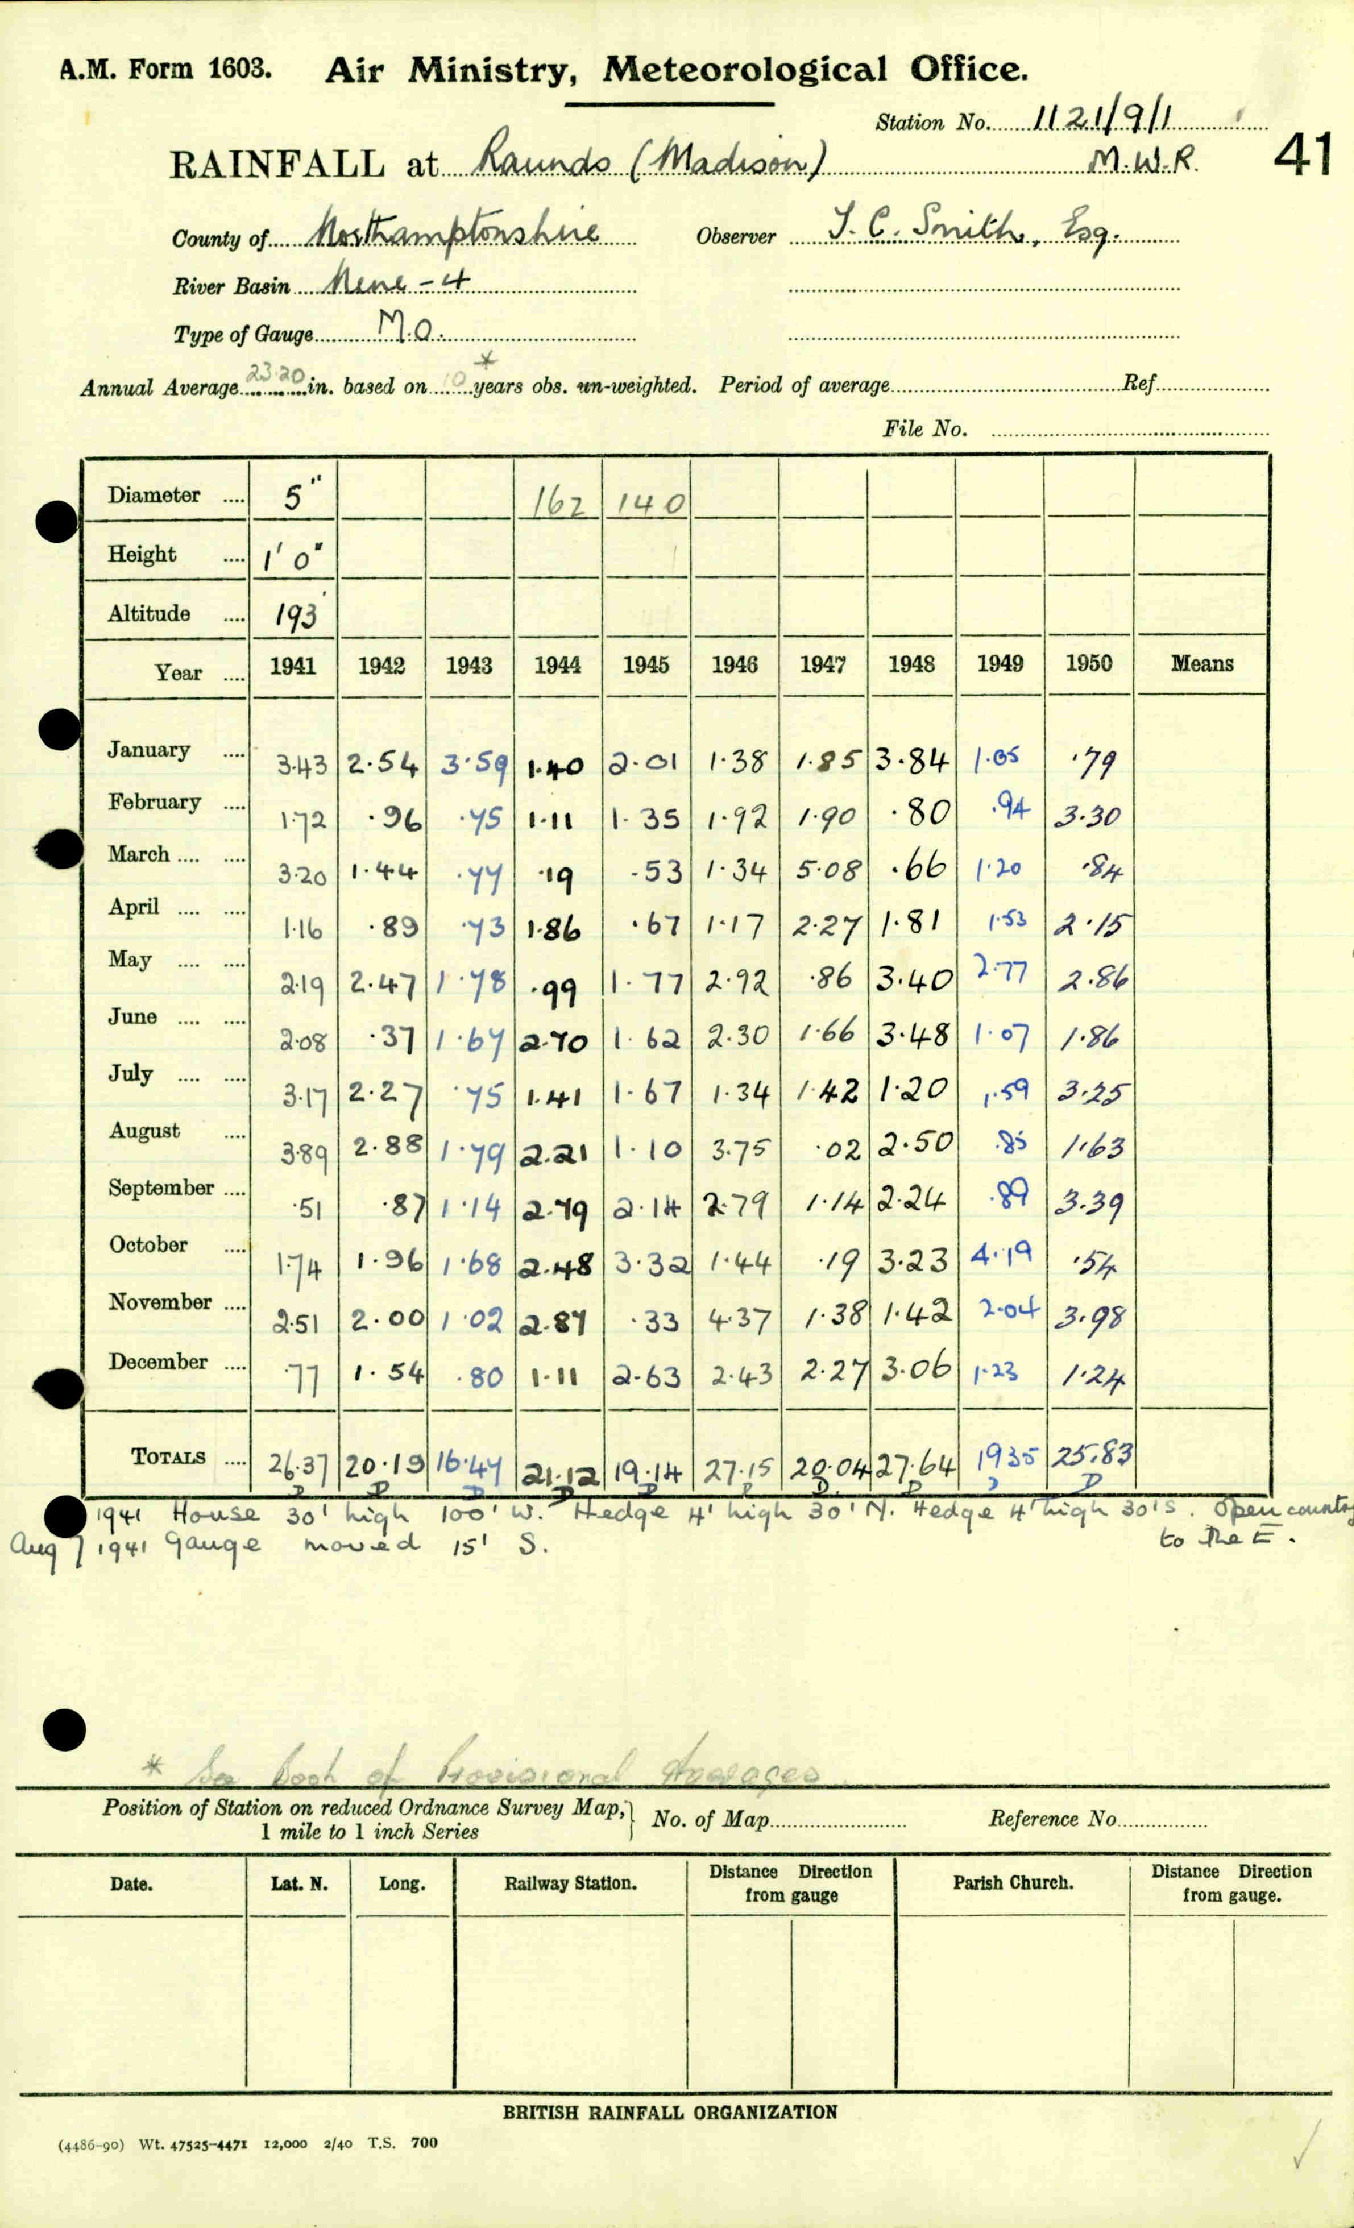 A.M. Form 1603. Air Ministry, Meteorological Office.
Station No. 1121/9/1
RAINFALL at Raunds (Madison) M.W.R. 41
County of Northamptonshire Observer J. C. Smith, Esq.
River Basin Nene - 4
Type of Gauge M.O.
Annual Average 23.20 in. based on 10 * years obs. un-weighted. Period of average Ref
File No.
Diameter .... 5" 162 140
Height .... 1' 0"
Altitude .... 193'
Year .... 1941 1942 1943 1944 1945 1946 1947 1948 1949 1950 Means
January .... 3.43 2.54 3.59 1.40 2.01 1.38 1.85 3.84 1.05 .79
February .... 1.72 .96 .75 1.11 1.35 1.92 1.90 .80 .94 3.30
March .... .... 3.20 1.44 .77 .19 .53 1.34 5.08 .66 1.20 .84
April .... .... 1.16 .89 .73 1.86 .67 1.17 2.27 1.81 1.53 2.15
May .... .... 2.19 2.47 1.78 .99 1.77 2.92 .86 3.40 2.77 2.86
June .... .... 2.08 .37 1.67 2.70 1.62 2.30 1.66 3.48 1.07 1.86
July .... .... 3.17 2.27 .75 1.41 1.67 1.34 1.42 1.20 1.59 3.25
August .... 3.89 2.88 1.79 2.21 1.10 3.75 .02 2.50 .85 1.63
September .... .51 .87 1.14 2.79 2.14 2.79 1.14 2.24 .89 3.39
October .... 1.74 1.96 1.68 2.48 3.32 1.44 .19 3.23 4.19 .54
November .... 2.51 2.00 1.02 2.87 .33 4.37 1.38 1.42 2.04 3.98
December .... .77 1.54 .80 1.11 2.63 2.43 2.27 3.06 1.23 1.24
TOTALS .... 26.37 20.19 16.47 21.12 19.14 27.15 20.04 27.64 1935 25.83
D D D D D D D D D
1941 House 30' high 100' W. Hedge 4' high 30' N. Hedge 4' high 30' S. Open country
Aug 7 1941 Gauge moved 15' S. to the E.
* See Book of Provisional Averages
Position of Station on reduced Ordnance Survey Map,} No. of Map Reference No.
1 mile to 1 inch Series
Date. Lat. N. Long. Railway Station. Distance Direction from gauge Parish Church. Distance Direction from gauge.
BRITISH RAINFALL ORGANIZATION
(4486-90) Wt. 47525-4471 12,000 2/40 T.S. 700